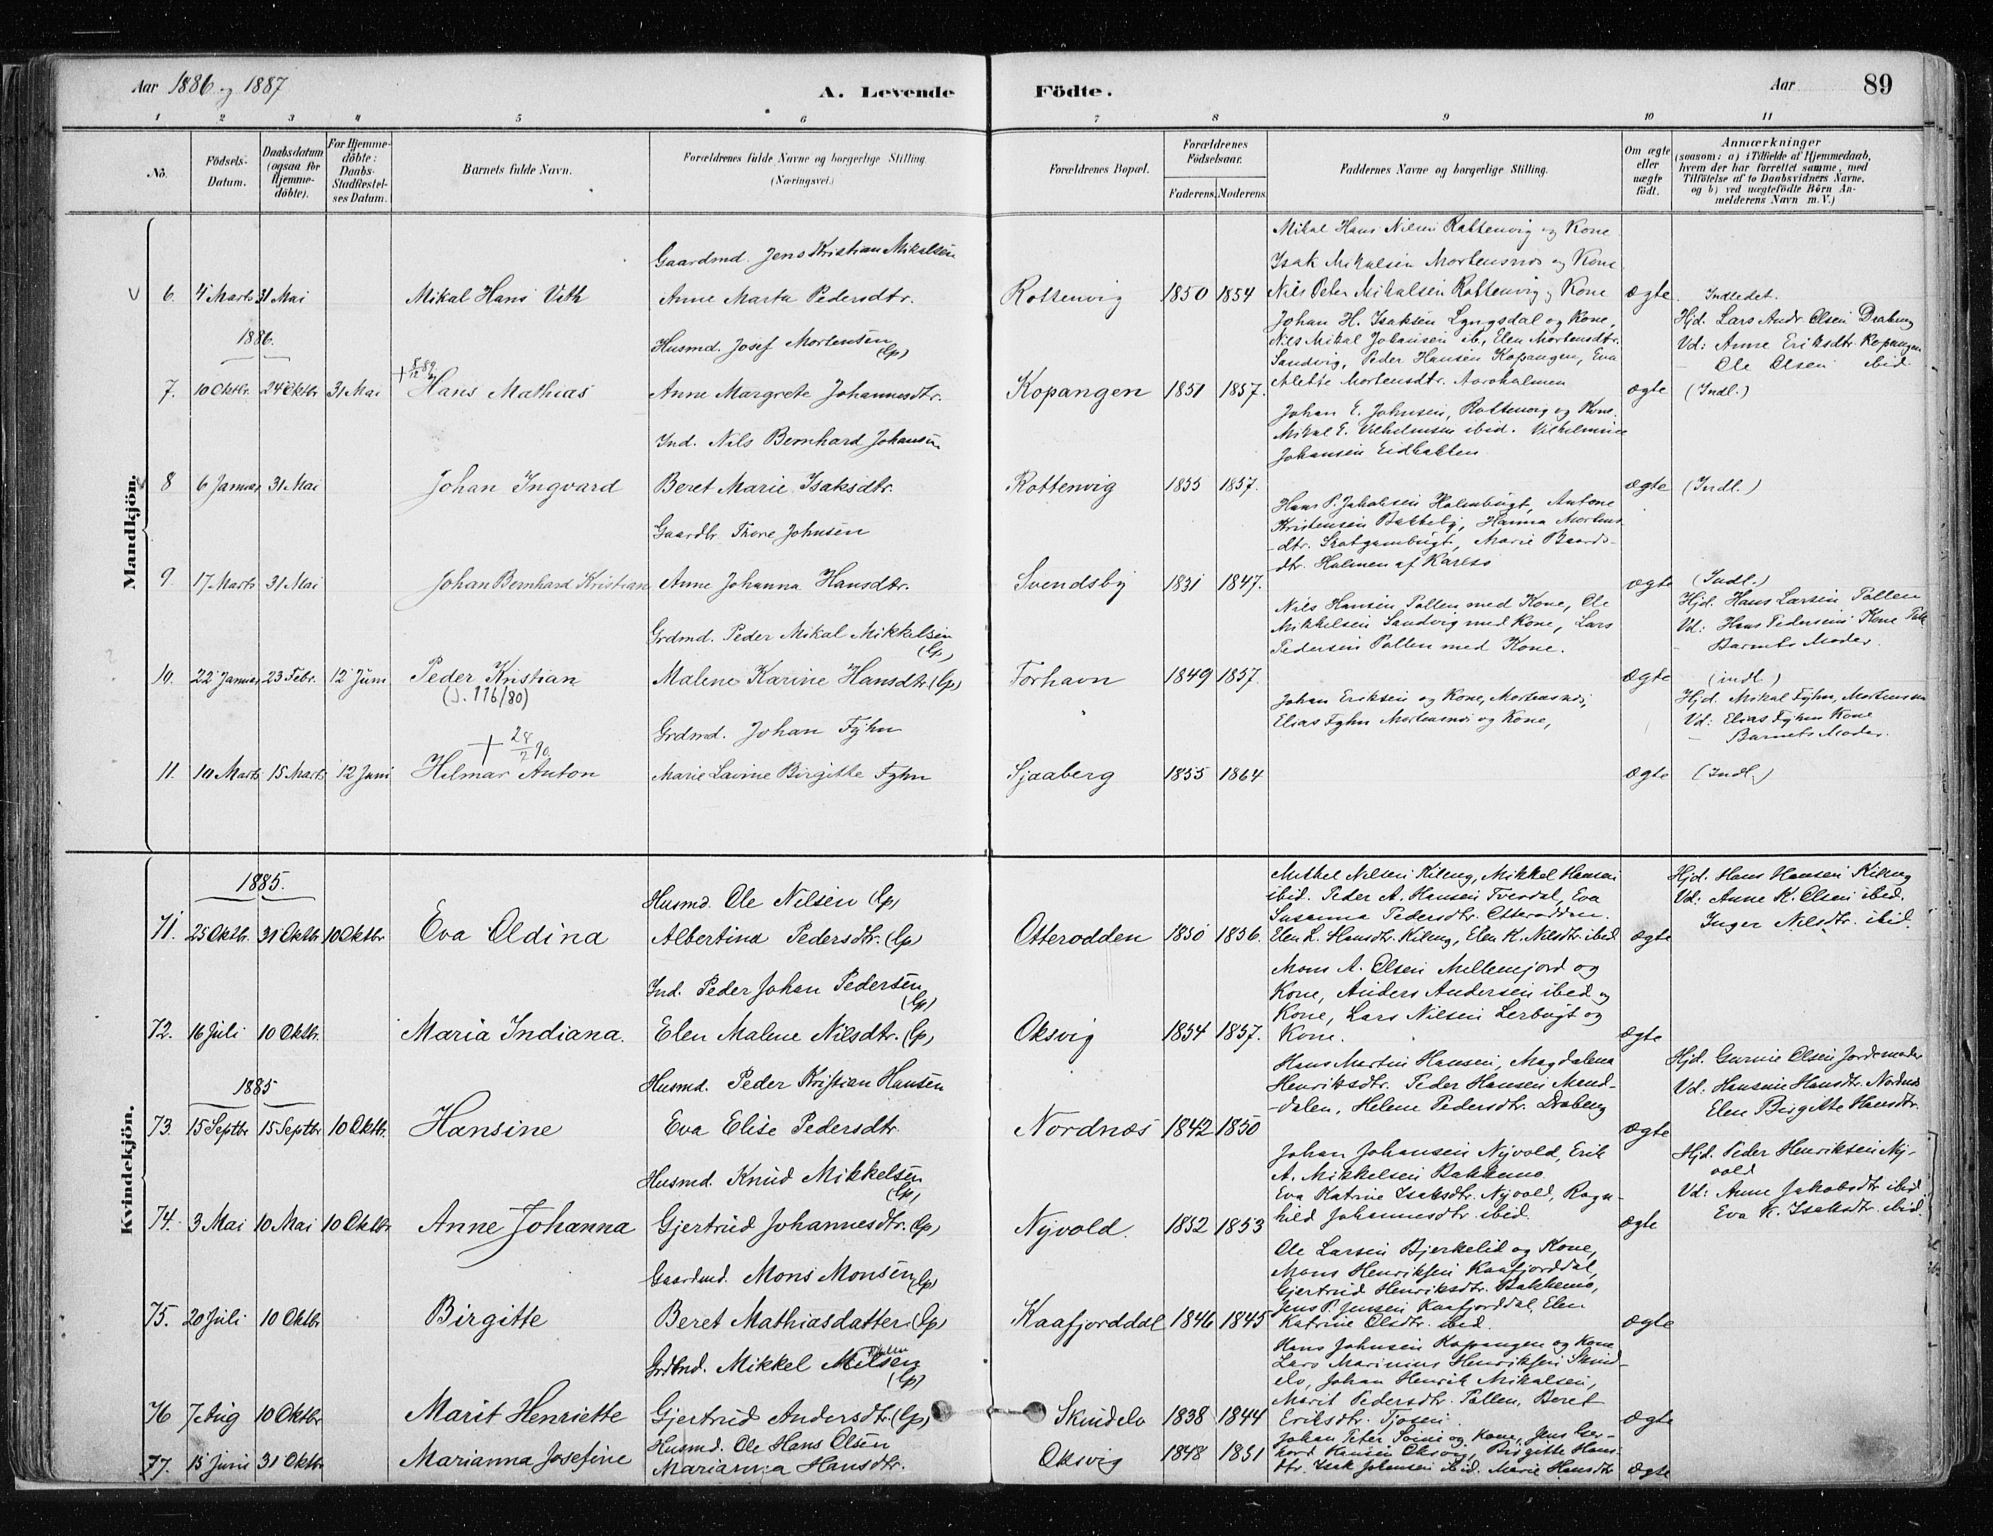 Aar 1886 og 1887
A. Levende Födte.
Aar
89
1 2 3 4 5 6 7 8 9 10 11
No.
Födsels-Datum.
Daabsdatum (ogsaa for Hjemme-döbte).
For Hjemme-döbte: Daabs-Stadfæstel-ses Datum.
Barnets fulde Navn.
Forældrenes fulde Navne og borgerlige Stilling.
(Næringsvei.)
Forældrenes Bopæl.
Forældrenes Födselsaar.
Faderens. Moderens.
Faddernes Navne og borgerlige Stilling.
Om ægte eller uægte födt.
Anmærkninger
(saasom: a) i Tilfælde af Hjemmedaab,
hvem der har forrettet samme, med
Tilföielse af to Daabsvidners Navne,
og b) ved uægtefödte Börn An-
melderens Navn m. V.)
Mandkjön.
Mikal Hans Nilsen Rottenvig og Kone
Gaardmd. Jens Kristian Mikalsen
Isak Mikalsen Mortensnes og Kone
6. 4 Marts 31 Mai Mikal Hans Vith Anne Marta Pedersdtr. Rottenvig 1850 1854 Nils Peter Mikalsen Rottenvig og Kone ægte Indledet.
1886.
Husmd. Josef Mortensen (lp)
Johan H. Isaksen Lyngsdal og Kone,
Nils Mikal Johansen ib, Elen Mortensdtr.
Sandvig, Peder Hansen Kopangen, Eva
Hjd. Lars Andr. Olsen Draberg
Vd: Anne Eriksdtr Kopangen
Ole Olsen ibid
7. 10 Oktbr. 24 Oktbr 31 Mai Hans Mathias Anne Margrete Johannesdtr. Kopangen 1851 1857. Alette Mortensdtr. Aaroholmen ægte (Indl.)
Ind. Nils Bernhard Johansen
Johan E. Johnsen, Rottenvig og Kone.
Mikal E. Vilhelmsen ibid. Vilhelmine
Johansen Eidbakken
8 6 Januar 31 Mai Johan Ingvard Beret Marie Isaksdtr. Rottenvig 1855 1857. ægte (Indl.)
Gaardbr Thore Johnsen
Hans P. Jakobsen Holmbugt, Antone
Kristensen Bakkeby, Hanna Mortens-
-dtr. Skatgambugt, Marie Baards-
dtr. Holmen af Karlsö
9. 17 Marts 31 Mai Johan Bernhard Kristian Anne Johanna Hansdtr. Svendsby 1831 1847. ægte (Indl.)
Grdmd. Peder Mikal Mikkelsen (lp)
Nils Hansen Pollen med Kone, Ole
Mikkelsen Sandvig med Kone, Lars
Pedersen Pollen med Kone.
Hjd. Hans Larsen Pollen
Vd: Hans Pedersens Kone
Barnets Moder
10. 22 Januar 23 Febr. 12 Juni Peder Kristian Malene Karine Hansdtr (lp) Forhavn 1849 1857. ægte (indl.)
(J. 116/80)
Grdmd. Johan Fyhn
Johan Eriksen og Kone, Mortensnes,
Elias Fyhn Mortensnes og Kone,
Hjd. Mikal Fyhn, Mortensnes
Vd: Elias Fyhn Kone
Barnets Moder.
+ 28/2 90
11. 10 Marts 15 Marts 12 Juni Hilmar Anton Marie Lavine Birgitte Fyhn Sjaaberg 1855 1864 ægte (Indl.)
Kvindekjön.
1885.
Husmd. Ole Nilsen (lp)
Mikkel Nilsen Kileng, Mikkel Hansen
ibid. Peder A. Hansen Tverdal, Eva
Susanna Pedersdtr. Otterodden.
Hjd. Hans Hansen Kileng
Vd: Anne K. Olsen ibid,
Inger Nilsdtr. ibid.
71. 25 Oktbr. 31 Oktbr 10 Oktbr Eva Oldina Albertina Pedersdtr. (lp) Otterodden 1850 1856. Elen L. Hansdtr. Kileng, Elen K. Nilsdtr. ibid ægte
Ind. Peder Johan Pedersen (lp)
Mons A. Olsen Millemjord og
Kone, Anders Andersen ibid og
Kone, Lars Nilsen Lerbugt og
72. 16 Juli 10 Oktbr. Maria Indiana. Elen Malene Nilsdtr. (lp) Oksvig 1854 1857. Kone. ægte
1885
Husmd. Peder Kristian Hansen
Hans Martin Hansen, Magdalena
Henriksdtr. Peder Hansen Mand-
-dalen, Helene Pedersdtr. Draberg
Hjd. Gurine Olsen Jordemoder
Vd: Hansine Hansdtr. Nordnes
Elen Birgitte Hansdtr.
73. 15 Septbr 15 Septbr 10 Oktbr. Hansine Eva Elise Pedersdtr. Nordnæs 1842 1850 ægte
Husmd. Knud Mikkelsen (lp)
Johan Johansen Nyvold, Erik
A. Mikkelsen Bakkemo
Eva Katrine Isaksdtr. Nyvold, Ragn-
Hjd. Peder Henriksen Ny-
vold
Vd: Anne Jakobsdtr ibid
Eva K. Isaksdtr. ibid.
74. 3 Mai 10 Mai 10 Oktbr Anne Johanna Gjertrud Johannesdtr. (lp) Nyvold. 1852 1853 hild Johannesdtr ibid. ægte
Gaardmd. Mons Monsen (lp)
Ole Larsen Bjerkelid og Kone,
Mons Henriksen Kaafjorddal,
Gjertrud Henriksdtr. Bakkemo,
Jens P. Jensen Kaafjorddal, Elen
75. 20 Juli 10 Oktbr Birgitte Beret Mathiasdatter (lp) Kaafjorddal 1846 1845 Katrine Olsdtr. ibid. ægte
Grdmd. Mikkel Nilsen (lp)
Hans Johnsen Kopangen og Kone
Lars Marinius Henriksen Skind-
elv, Johan Henrik Mikalsen,
Marit Pedersdtr. Pollen, Beret
76 7 Aug 10 Oktbr Marit Henriette Gjertrud Andersdtr (lp) Skindelv 1838 1844 Eriksdtr. Tjosen. ægte
Husmd. Ole Hans Olsen
Johan Peter Soine og Kone, Jens Ger-
hard Hansen Oksvig, Birgitte Hans-
77. 15 Juni 31 Oktbr Marianna Josefine Marianna Hansdtr. Oksvig 1848 1851 dtr. Isak Johansen ibid. Marie Hansdtr ægte